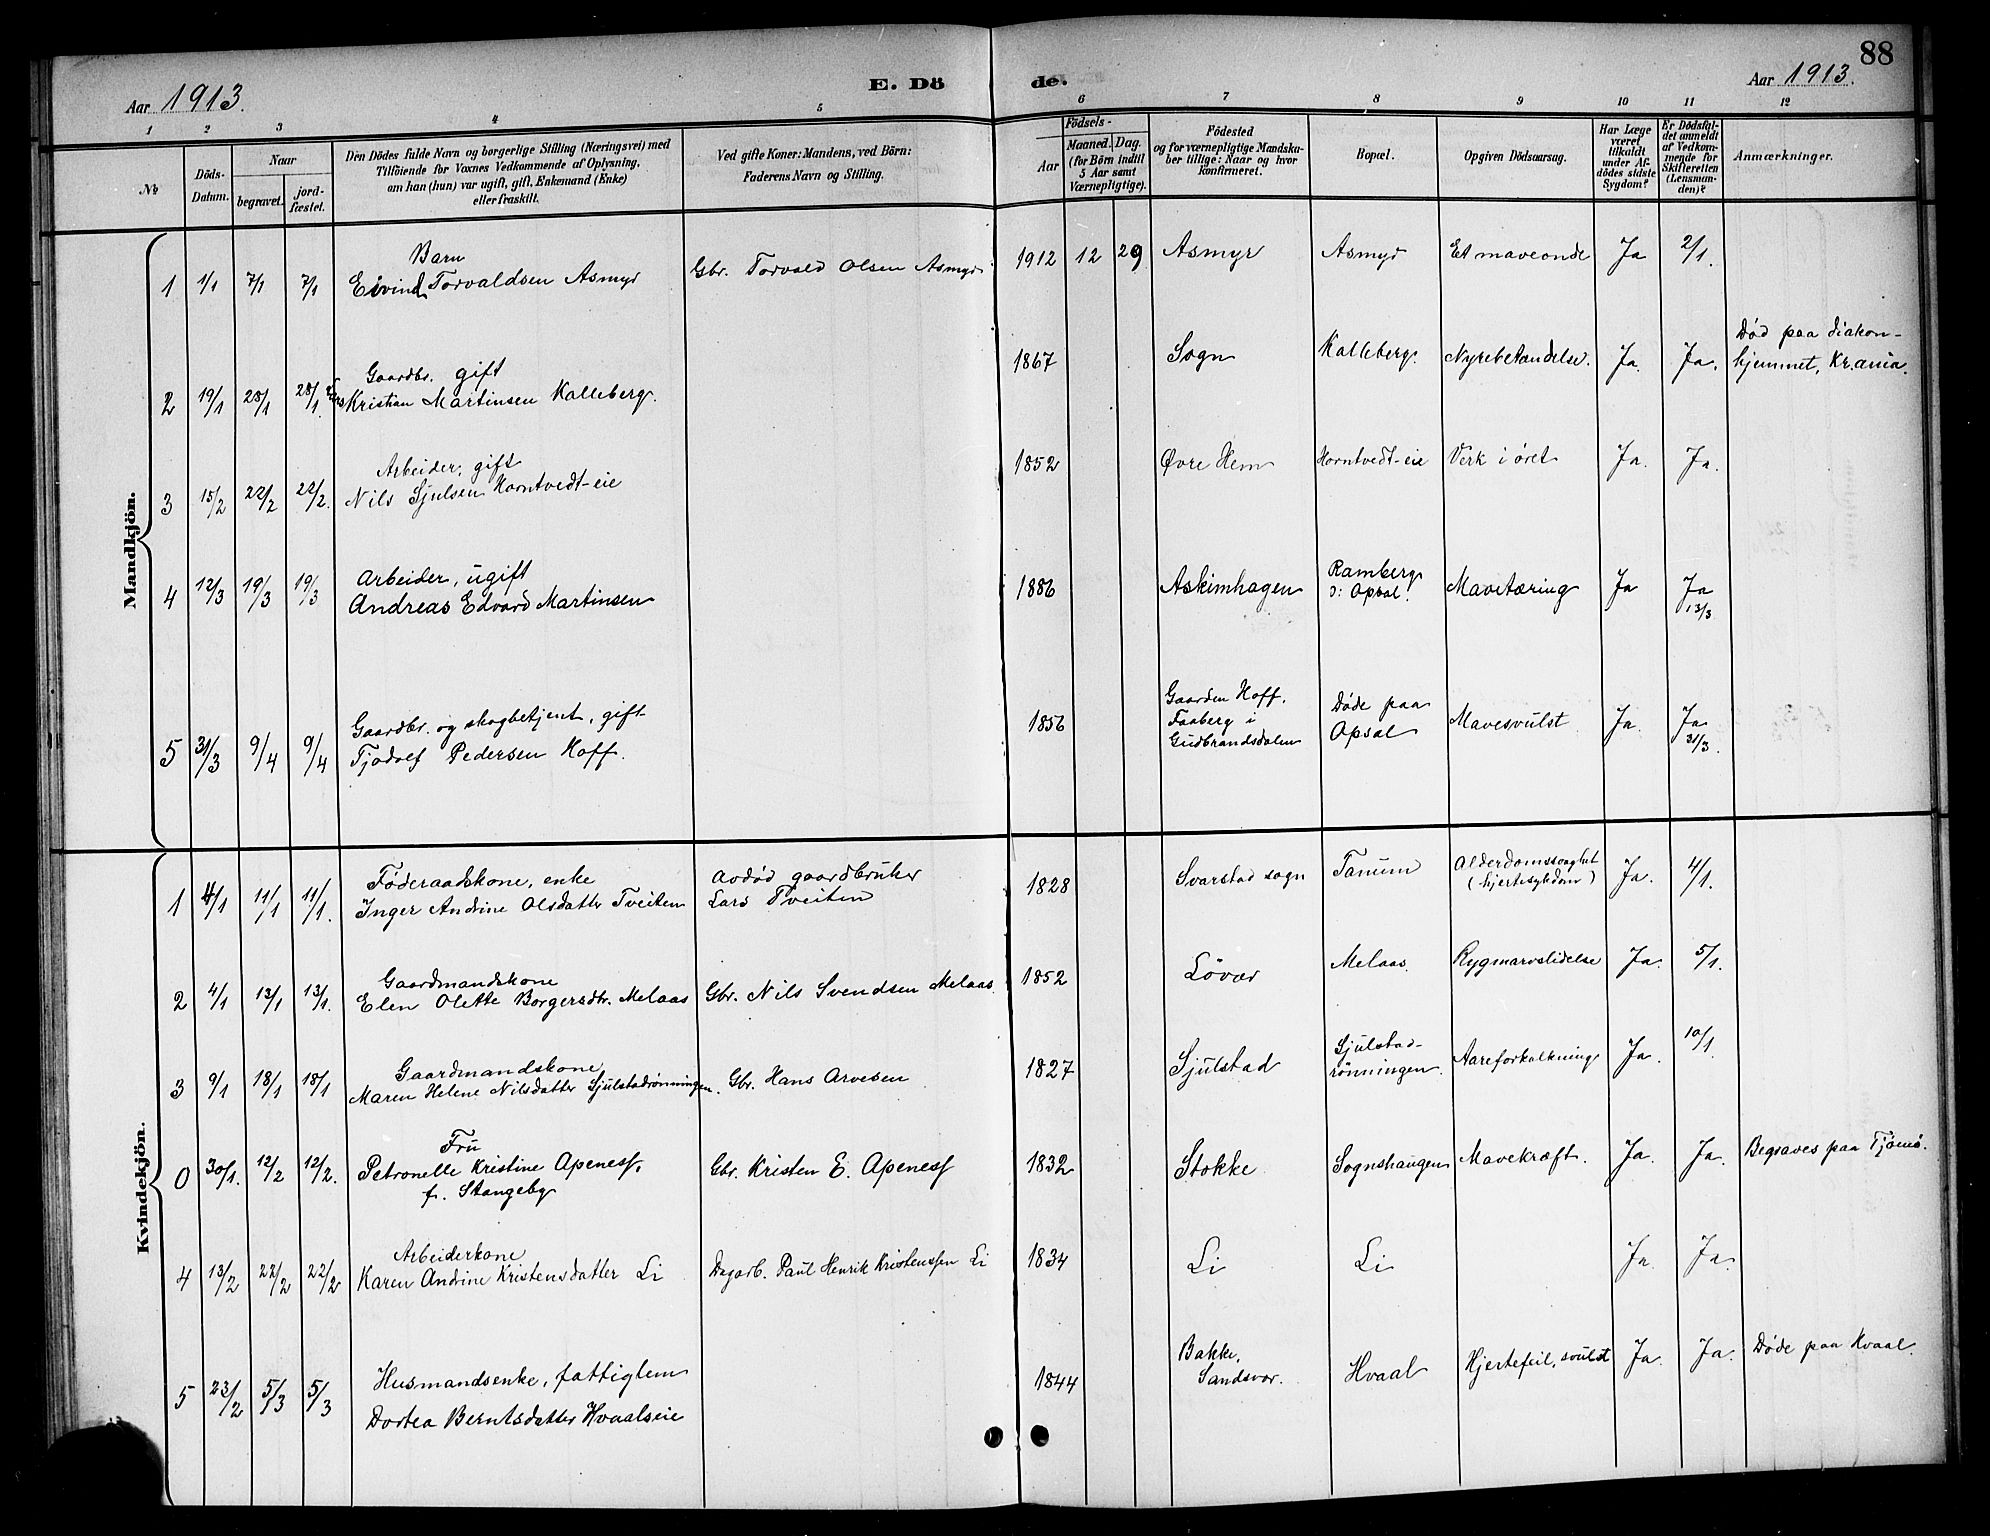 88
Aar 1913.
E. Dö de.
Aar 1913.
1 2 3 4 5 6 7 8 9 10 11 12
No
Döds-
Datum.
Naar
begravet.
jord-
fæstet.
Den Dödes fulde Navn og borgerlige Stilling (Næringsvei) med
Tilföiende for Voxnes Vedkommende af Oplysning,
om han (hun) var ugift, gift, Enkemand (Enke)
eller fraskilt.
Ved gifte Koner: Mandens, ved Börn:
Faderens Navn og Stilling.
Födsels-
Aar
Maaned. Dag.
(for Börn indtil
5 Aar samt
Værnepligtige).
Födested
og for værnepligtige Mandska-
ber tillige: Naar og hvor
konfirmeret.
Bopæl.
Opgiven Dödsaarsag.
Har Læge
været
tilkaldt
under Af-
dödes sidste
Sygdom?
Er Dödsfal-
det anmeldt
af Vedkom-
mende for
Skifteretten
(Lensman-
den)?
Anmærkninger.
Mandkjön.
Barn
1 1/1 7/1 7/1 Eivind Torvaldsen Asmyr Gbr. Torvald Olsen Asmyr 1912 12 29 Asmyr Asmyr Et maveonde Ja 2/1.
Gaardbr. gift
2 19/1 28/1 28/1. Kristian Martinsen Kalleberg. 1867 Sogn Kalleberg. Nyrebetændelse. Ja. Ja. Död paa diakon-
hjemmet, Kr.ania.
Arbeider, gift
3 15/2 22/2 22/2. Nils Sjulsen Horntvedt-eie 1852 Øvre Hem Horntvedt-eie Verk i øret Ja. Ja.
Arbeider, ugift
4 12/3 19/3 19/3 Andreas Edvard Martinsen 1886 Askimhagen Ramberg
o: Opsal. Mavetæring Ja Ja
13/3
Gaardbr. og skogbetjent, gift
5 31/3 9/4 9/4 Tjodolf Pedersen Hoff. 1856 Gaarden Hoff,
Faaberg i
Gudbrandsdalen Døde paa
Opsal Mavesvulst Ja. Ja
31/3.
Kvindekjön.
Føderaadskone, enke
1 4/1 11/1 11/1. Inger Andrine Olsdatter Tveiten Avdød gaardbruker
Lars Tveiten 1828 Svarstad sogn Tanum Alderdomssvaghet
(hjertesykdom) Ja. 4/1.
Gaardmandskone
2 4/1 13/1 13/1. Elen Olette Borgersdtr. Melaas Gbr. Nils Svendsen Melaas 1852 Løvar Melaas. Rygmarvslidelse Ja. 5/1.
Gaardmandskone
3 9/1 18/1 18/1 Maren Helene Nilsdatter Sjulstadrønningen. Gbr. Hans Arvesen 1827 Sjulstad Sjulstad-
rønningen. Aareforkalkning Ja. 10/1.
Fru
0 30/1. 12/2 12/2. Petronelle Kristine Apeness,
f. Stangeby Gbr. Kristen E. Apeness 1832 Stokke Sognshaugen Mavekræft. Ja. Ja. Begraves paa Tjømø.
Arbeiderkone
4 13/2 22/2 22/2 Karen Andrine Kristensdatter Li Dagarb. Paul Henrik Kristenssen Li 1834 Li Li Ja. Ja.
Husmandsenke, fattiglem
5 23/2 5/3 5/3 Dortea Berntsdatter Hvaalseie 1844 Bakke,
Sandsvær. Hvaal Hjertefeil, svulst Ja. Ja. Døde paa Hvaal